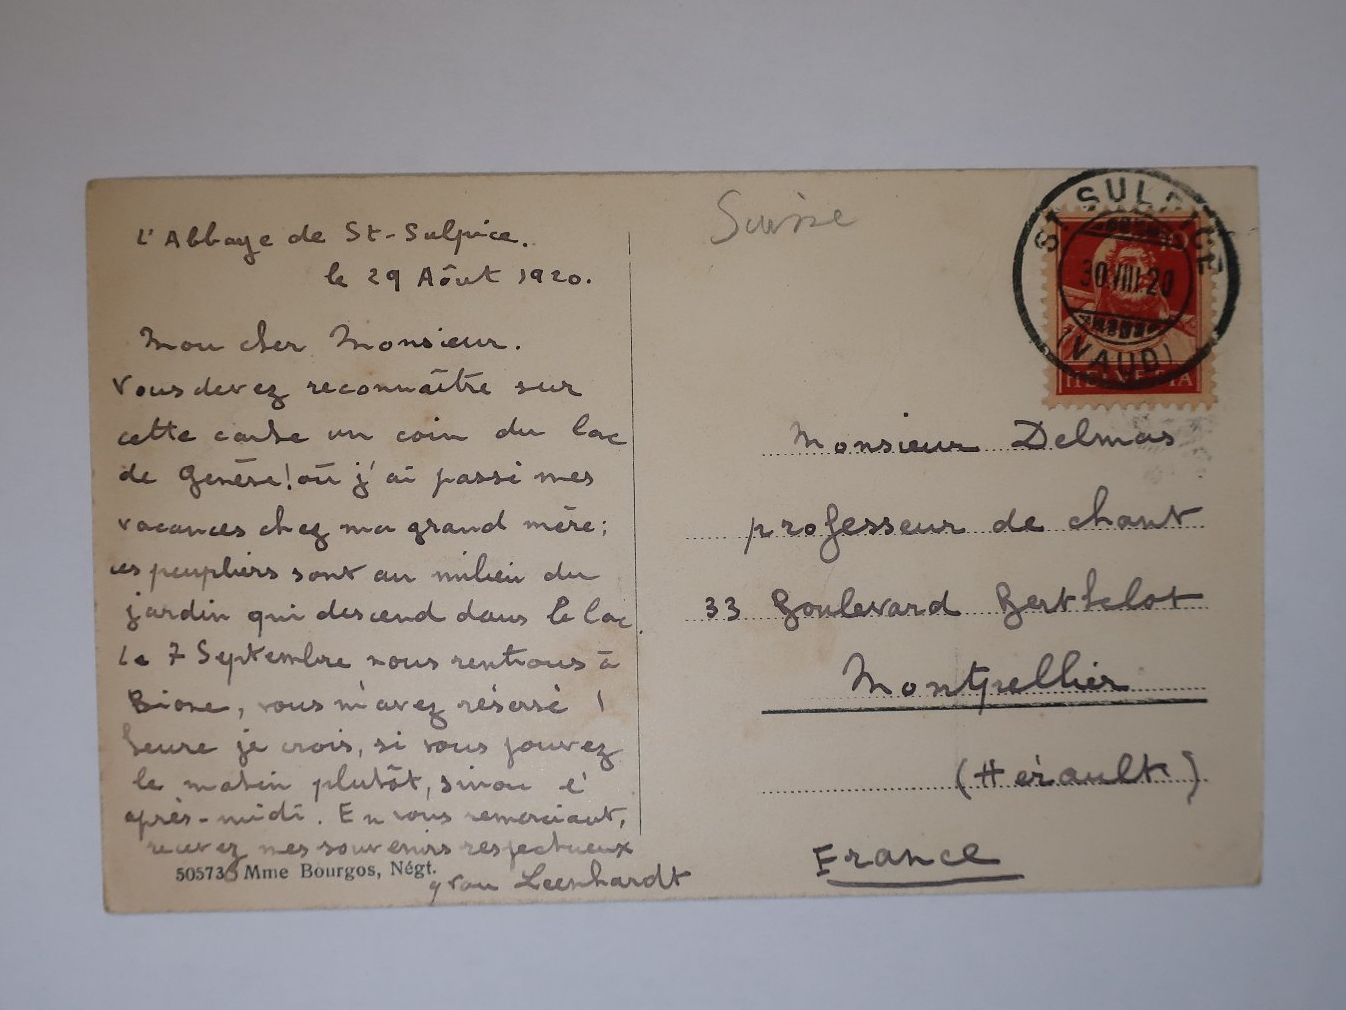 L'Abbaye de St-Sulpice.
le 29 Aôut 1920.
Mon cher Monsieur.
Vous devez reconnaître sur
cette carte un coin du lac
de Genève! où j'ai passé mes
vacances chez ma grand mère;
ces peupliers sont au milieu du
jardin qui descend dans le lac
Le 7 Septembre nous rentrons à
Bione, vous m'avez réservé 1
heure je crois, si vous pouvez
le matin plutôt, sinon l'
après-midi. En vous remerciant,
recevez mes souvenirs respectueux
Yvan Leenhardt
50573 Mme Bourgos, Négt.
Suisse
ST SULPICE
30.VIII.20
(VAUD)
10
HELVETIA
Monsieur Delmas
professeur de chant
33 Boulevard Berthelot
Montpellier
(Hérault)
France